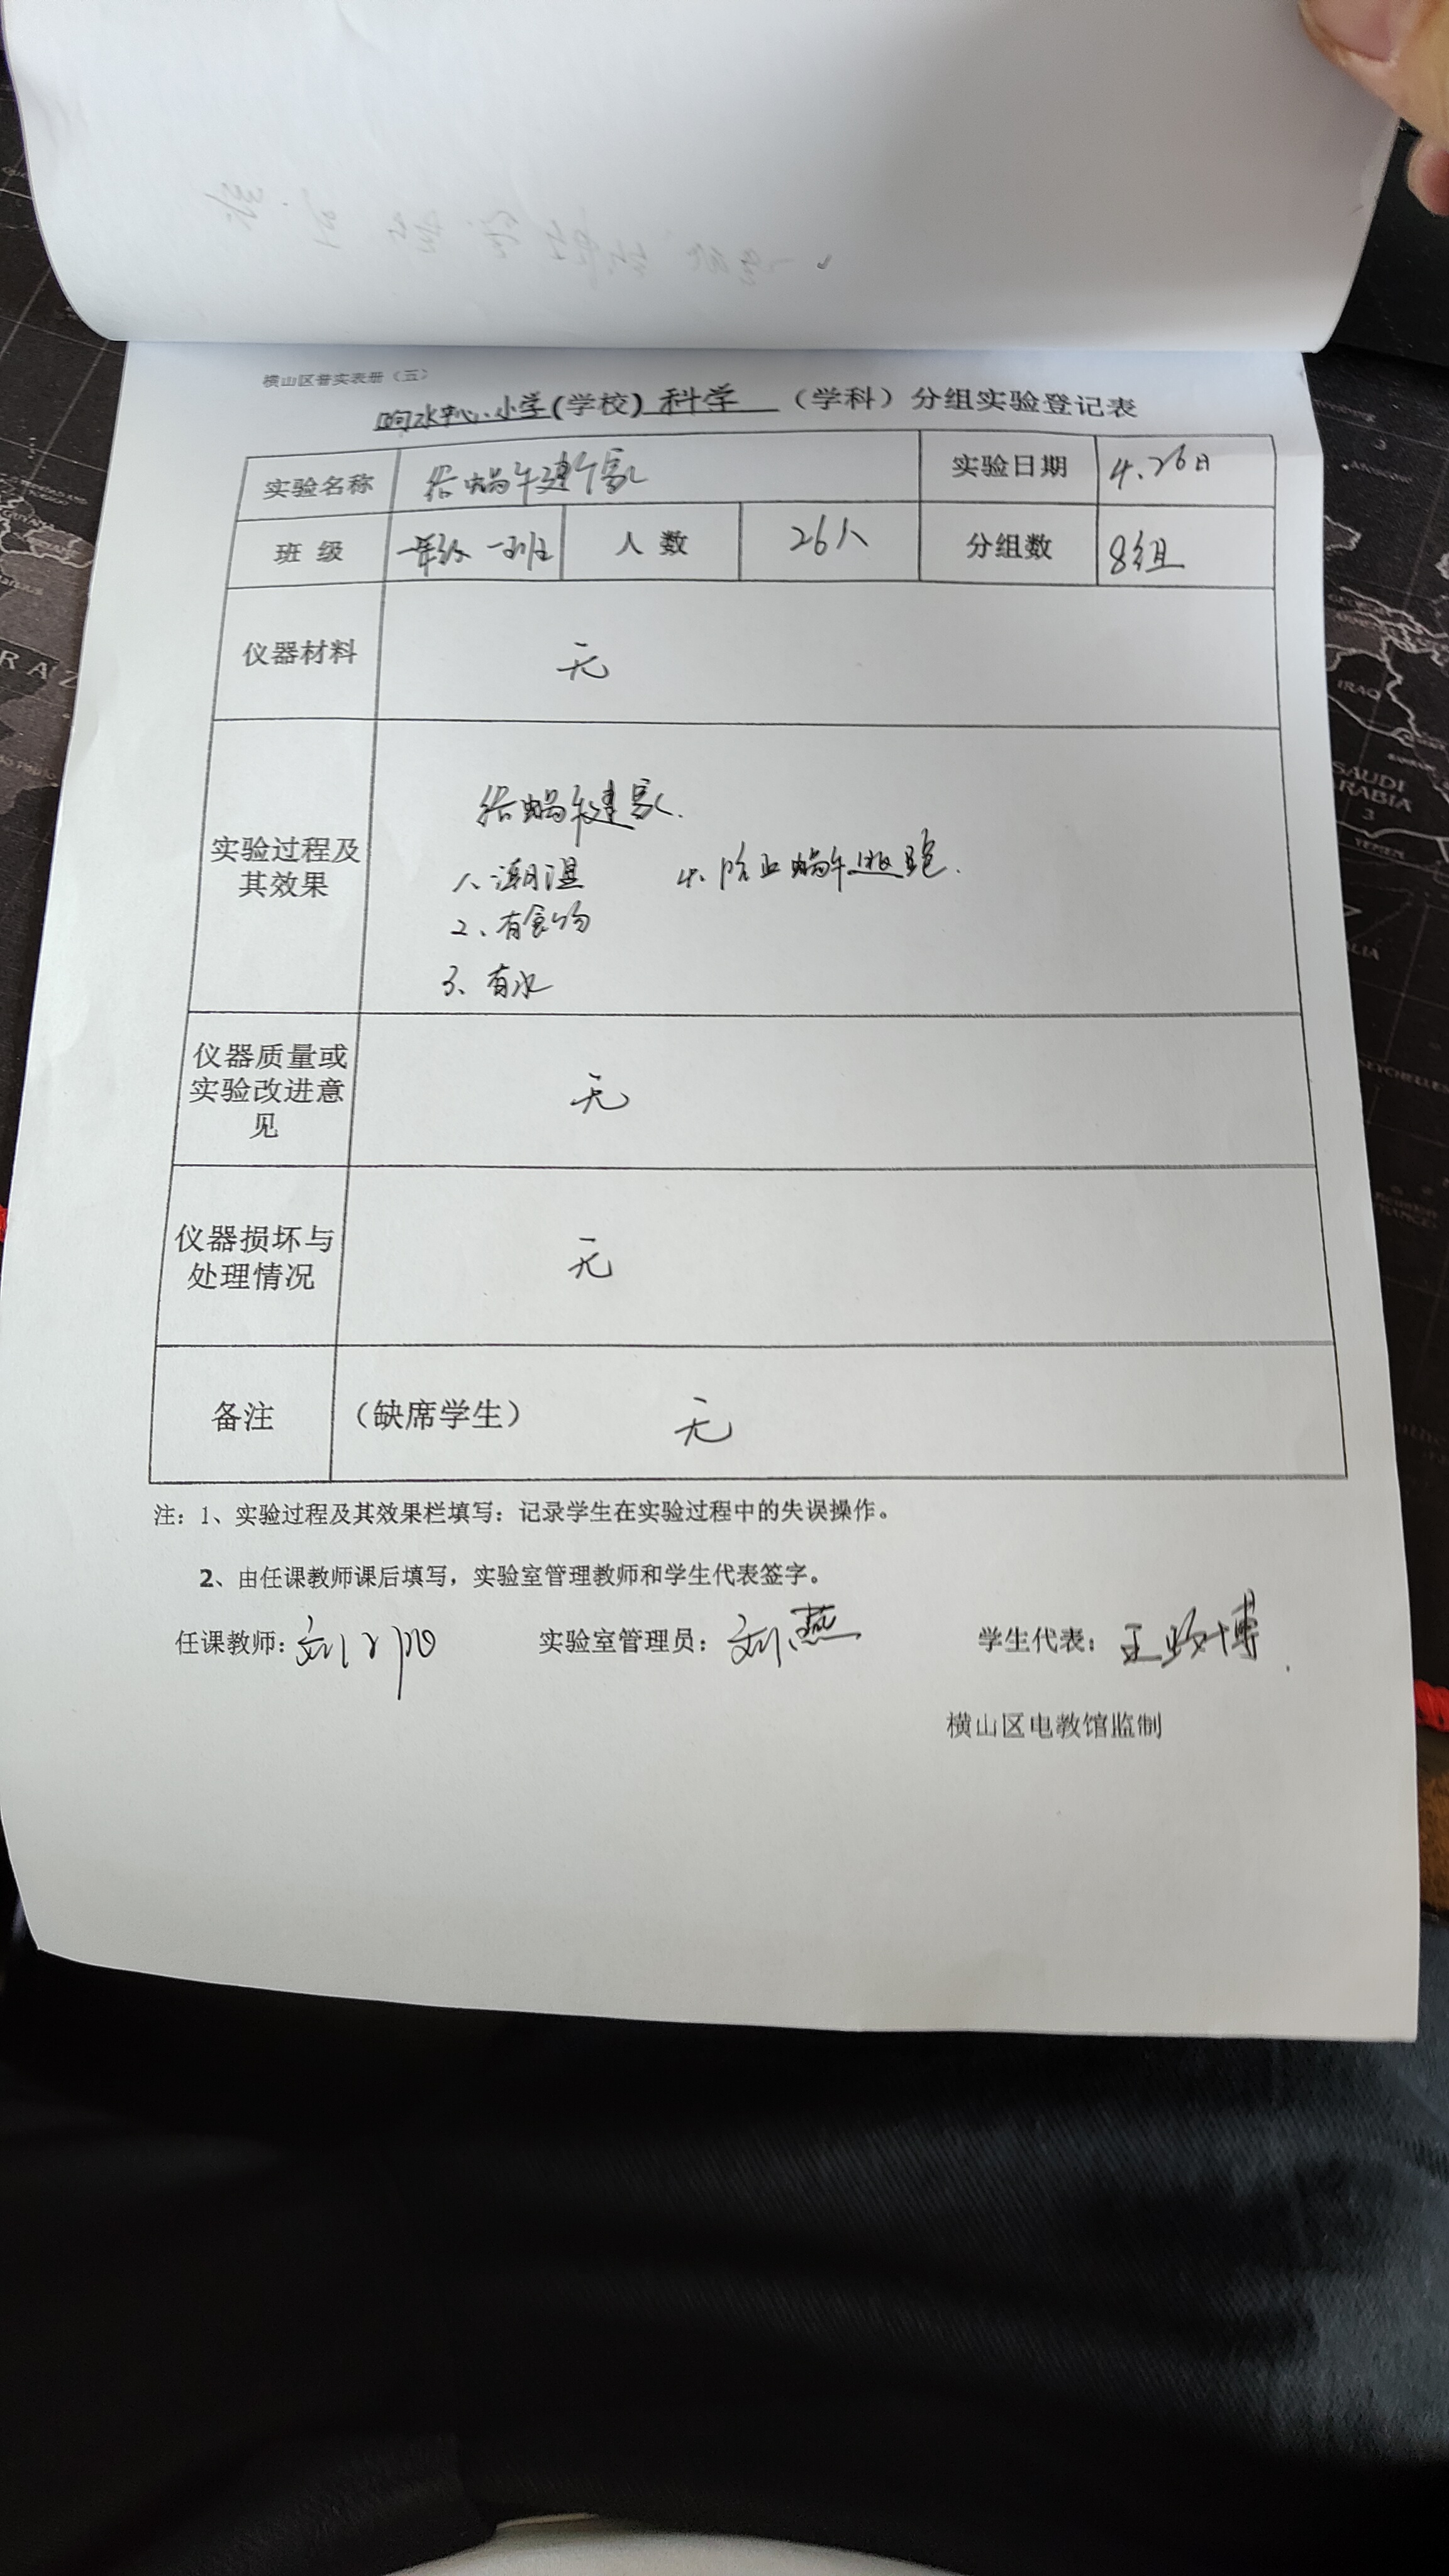 横山区普实表册（五）
响水中心小学(学校) 科学 （学科）分组实验登记表
实验名称 给蜗牛建个家 实验日期 4.26日
班 级 一年级 一班 人 数 26人 分组数 8组
仪器材料 无
给蜗牛建家.
实验过程及
其效果
1、潮湿 4、防止蜗牛逃跑.
2、有食物
3、有水
仪器质量或
实验改进意
见
无
仪器损坏与
处理情况
无
备注 （缺席学生） 无
注：1、实验过程及其效果栏填写：记录学生在实验过程中的失误操作。
2、由任课教师课后填写，实验室管理教师和学生代表签字。
任课教师：刘 实验室管理员：刘燕 学生代表：王 博
横山区电教馆监制
IRAQ
SAUDI
ARABIA
YEMEN
SEYCHELLES